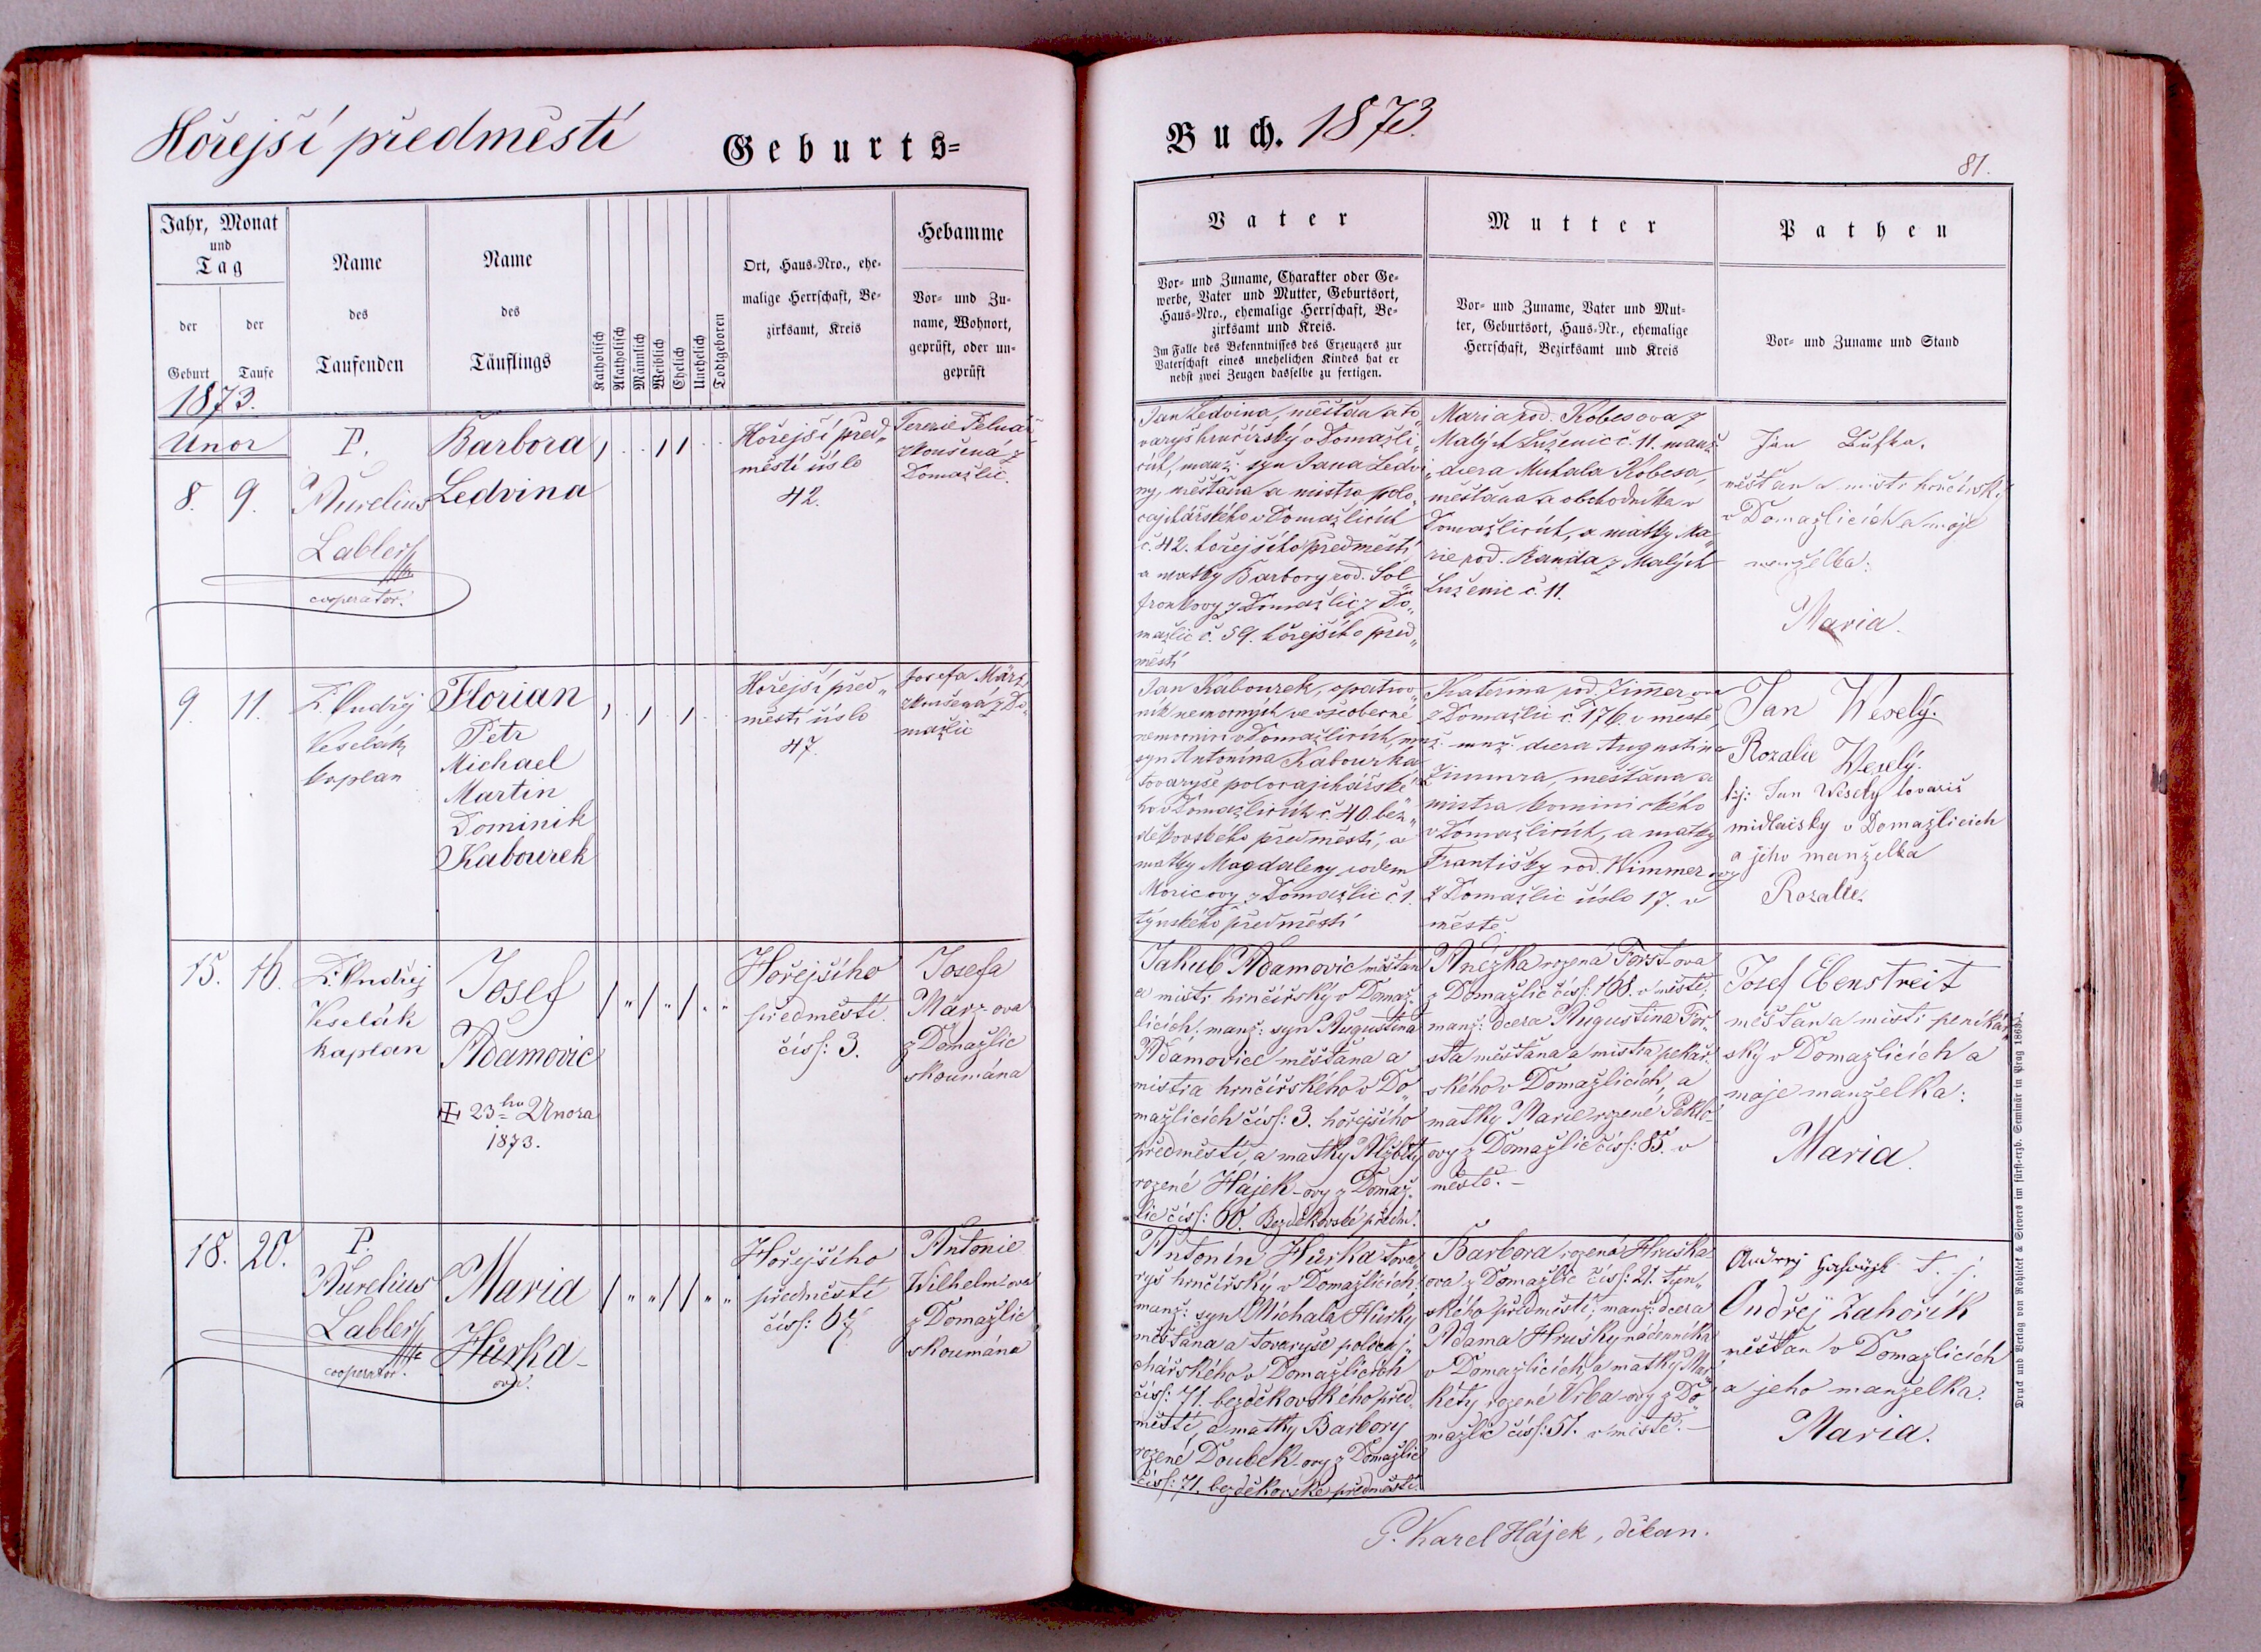 Hořejší předměstí
Geburts=
Buch. 1873.
81.
Jahr, Monat
und
Tag
der
Geburt
der
Taufe
Name
des
Taufenden
Name
des
Täuflings
Katholisch
Akatholisch
Männlich
Weiblich
Ehelich
Unehelich
Todtgeboren
Ort, Haus=Nro., ehe=
malige Herrschaft, Be=
zirksamt, Kreis
Hebamme
Vor= und Zu=
name, Wohnort,
geprüft, oder un=
geprüft
Vater
Vor= und Zuname, Charakter oder Ge=
werbe, Vater und Mutter, Geburtsort,
Haus=Nro., ehemalige Herrschaft, Be=
zirksamt und Kreis.
Im Falle des Bekenntnisses des Erzeugers zur
Vaterschaft eines unehelichen Kindes hat er
nebst zwei Zeugen dasselbe zu fertigen.
Mutter
Vor= und Zuname, Vater und Mut=
ter, Geburtsort, Haus=Nr., ehemalige
Herrschaft, Bezirksamt und Kreis
Pathen
Vor= und Zuname und Stand
1873.
Unor
8. 9.
P.
Aurelius
Labler
cooperator.
Barbora
Ledvina
Hořejší před„
městí úslo
42.
Terezie
zkoušená z
Domažlic.
Jan Ledvina, měšťan a to„
varyš hrnčířský v Domažli„
cích, manž. syn Jana Ledvi„
ny, měšťana a mistra polo„
cajchářského v Domažlicích
č. 42. hořejšího předměstí
a matky Barbory rod. Sol„
fronkovy z Domažlic z Do„
mažlic č. 59. hořejšího před„
městí
Maria rod. Kobesova z
Malých Luženic č. 11. manž.
dcera Michala Kobesa,
měšťana a obchodníka v
Domažlicích, a matky Ma„
rie rod. Randa z Malých
Luženic č. 11.
Jan
měšťan a mistr hrnčířský
v Domažlicích a moje
manželka:
Maria.
9. 11.
P. Ondřej
Veselák
kaplan
Florian
Petr
Michael
Martin
Dominik
Kabourek
Hořejší před„
městí úslo
47.
Josefa März,
zkoušená z Do„
mažlic
Jan Kabourek, opatrov„
ník nemocných ve všeobecné
nemocnici v Domažlicích, manž.
syn Antonína Kabourka
tovaryše polocajchářské„
ho v Domažlicích č. 40. bez„
děkovského předměstí, a
matky Magdaleny rodem
Moricovy z Domažlic č 1.
týnského předměstí
Kateřina rod. Zimmerova
z Domažlic č. 176. v městě,
manž. dcera Augustina
Zimmra, měšťana a
mistra kominického
v Domažlicích, a matky
Františky rod. Wimmerovy
z Domažlic úslo 17. v
městě.
Jan Wesely.
Rozalie Wesely.
tj: Jan Wesely tovariš
midlaisky v Domažlicich
a jeho manželka
Rozalie.
15. 16.
P. Ondřej
Veselák
kaplan
Josef
Adamovic
23ho Unora
1873.
Hořejšího
předměstí.
čísl: 3.
Josefa
März-ova
z Domažlic
skoumána
Jakub Adamovic měšťan
a mistr hrnčířský v Domaž„
licích, manž: syn Augustina
Adamovice měšťana a
mistra hrnčířského v Do„
mažlicích čísl: 3. hořejšího
předměstí, a matky Alžběty
rozené Hájek-ovy z Domaž„
lic čísl: 60. Bezděkovské předm:
Anežka rozená Forst-ova
z Domažlic čísl: 168. v městě,
manž: dcera Augustina For„
sta měšťana a mistra pekař„
ského v Domažlicích, a
matky Marie rozené Peklo„
ovy z Domažlic čísl: 85. v
městě. —
Josef Ebenstreit
měšťan a mistr perníkář„
ský v Domažlicích a
moje manželka:
Maria.
18. 20.
P.
Aurelius
Labler
cooperator.
Maria
Hůrka-
ova.
Hořejšího
předměstí
čísl: 67.
Antonie
Wilhelm-ova
z Domažlic
skoumána
Antonín Hůrka tova„
ryš hrnčířský v Domažlicích,
manž: syn Michala Hůrky
měšťana a tovaryše polocaj„
chářského v Domažlicích
čísl: 71. bezděkovského před„
městí, a matky Barbory
rozené Doubek-ovy z Domažlic
čísl: 71. bezděkovské předměstí.
Barbora rozená Hruška-
ova z Domažlic čísl: 21. týn„
ského předměstí, manž: dcera
Adama Hrušky nádenníka
v Domažlicích, a matky Mar„
kéty rozené Vrba-ovy z Do„
mažlic čísl: 51. v městě. —
t. j.
Ondřej Zahořík
měšťan v Domažlicích
a jeho manželka.
Maria.
P. Karel Hájek, děkan.
Druck und Verlag von Rohliček & Sievers im fürst=erzb. Seminär in Prag 1863.